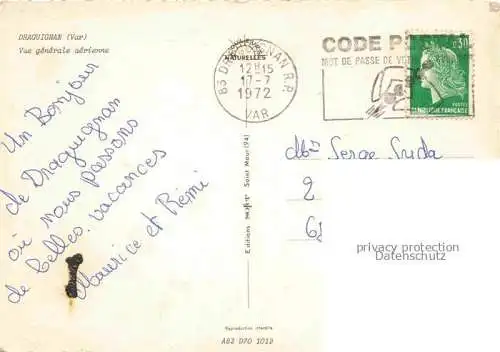 DRAGUIGNAN (Var)
Vue générale aérienne
Un Bonjour
de Draguignan
où nous passons
de belles vacances
Maurice et Rémi
NATURELLES
83 DRAGUIGNAN R.P.
12H15
17-7
1972
VAR
CODE P
MOT DE PASSE DE VOT
0,30
POSTES
REPUBLIQUE FRANÇAISE
Serge
2
6
Editions Saint Maur (94)
privacy protection
Datenschutz
Reproduction interdite
A83 D70 1013